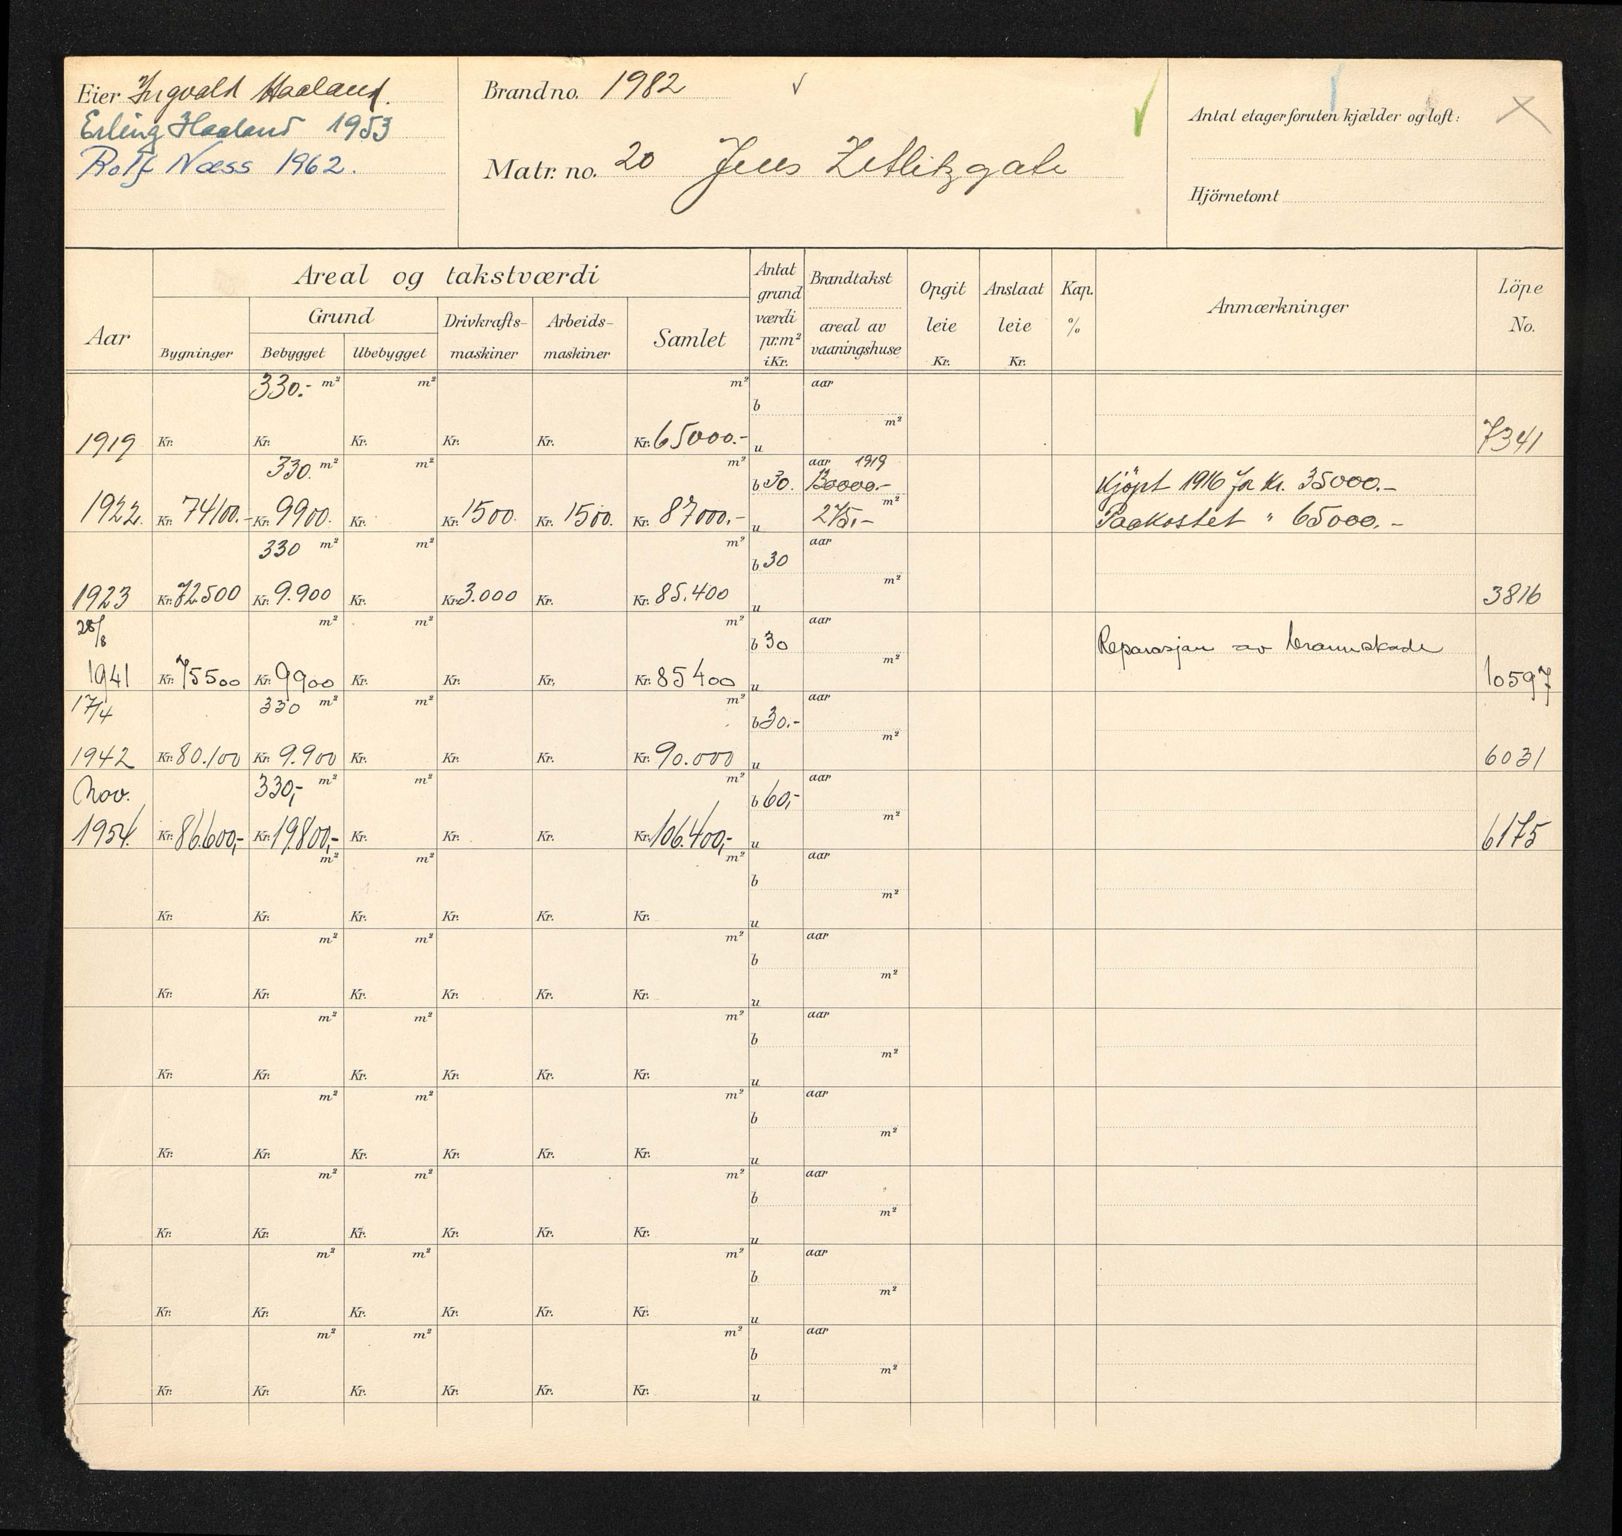 Eier Ingvald Haaland.
Erling Haaland 1953
Rolf Næss 1962.
Brand no. 1982
Matr. no. 20 Jens Zetlitzgate
Antal etager foruten kjælder og loft:
Hjörnetomt
Aar
Areal og takstværdi
Bygninger
Grund
Bebygget
Ubebygget
Drivkrafts-
maskiner
Arbeids-
maskiner
Samlet
Antat
grund
værdi
pr.m²
i Kr.
Brandtakst
areal av
vaaningshuse
Opgit
leie
Kr.
Anslaat
leie
Kr.
Kap.
%
Anmærkninger
Löpe
No.
330.- m² m² m² aar
b
m²
1919 Kr. Kr. Kr. Kr. Kr. Kr. 65000.- u 7341
330. m² m² m² aar 1919
b 30. Kjöpt 1916 for kr. 35000.-
m²
1922. Kr. 74100.- Kr. 9900. Kr. Kr. 1500. Kr. 1500. Kr. 87000.- u 275.- Paakostet " 65000.-
330 m² m² m² aar
b 30
m²
1923 Kr. 72500 Kr. 9.900 Kr. Kr. 3.000 Kr. Kr. 85.400 u 3816
28/8 m² m² m² aar
b 30 Reparasjon av brannskade
m²
1941 Kr. 75500 Kr. 9900 Kr. Kr. Kr. Kr. 85400 u 10597
17/4 330 m² m² m² aar
b 30.-
m²
1942 Kr. 80.100 Kr. 9.900 Kr. Kr. Kr. Kr. 90.000 u 6031
Nov. 330,- m² m² m² aar
b 60,-
m²
1954. Kr. 86.600,- Kr. 19.800,- Kr. Kr. Kr. Kr. 106.400,- u 6175
m² m² m² aar
b
m²
Kr. Kr. Kr. Kr. Kr. Kr. u
m² m² m² aar
b
m²
Kr. Kr. Kr. Kr. Kr. Kr. u
m² m² m² aar
b
m²
Kr. Kr. Kr. Kr. Kr. Kr. u
m² m² m² aar
b
m²
Kr. Kr. Kr. Kr. Kr. Kr. u
m² m² m² aar
b
m²
Kr. Kr. Kr. Kr. Kr. Kr. u
m² m² m² aar
b
m²
Kr. Kr. Kr. Kr. Kr. Kr. u
m² m² m² aar
b
m²
Kr. Kr. Kr. Kr. Kr. Kr. u